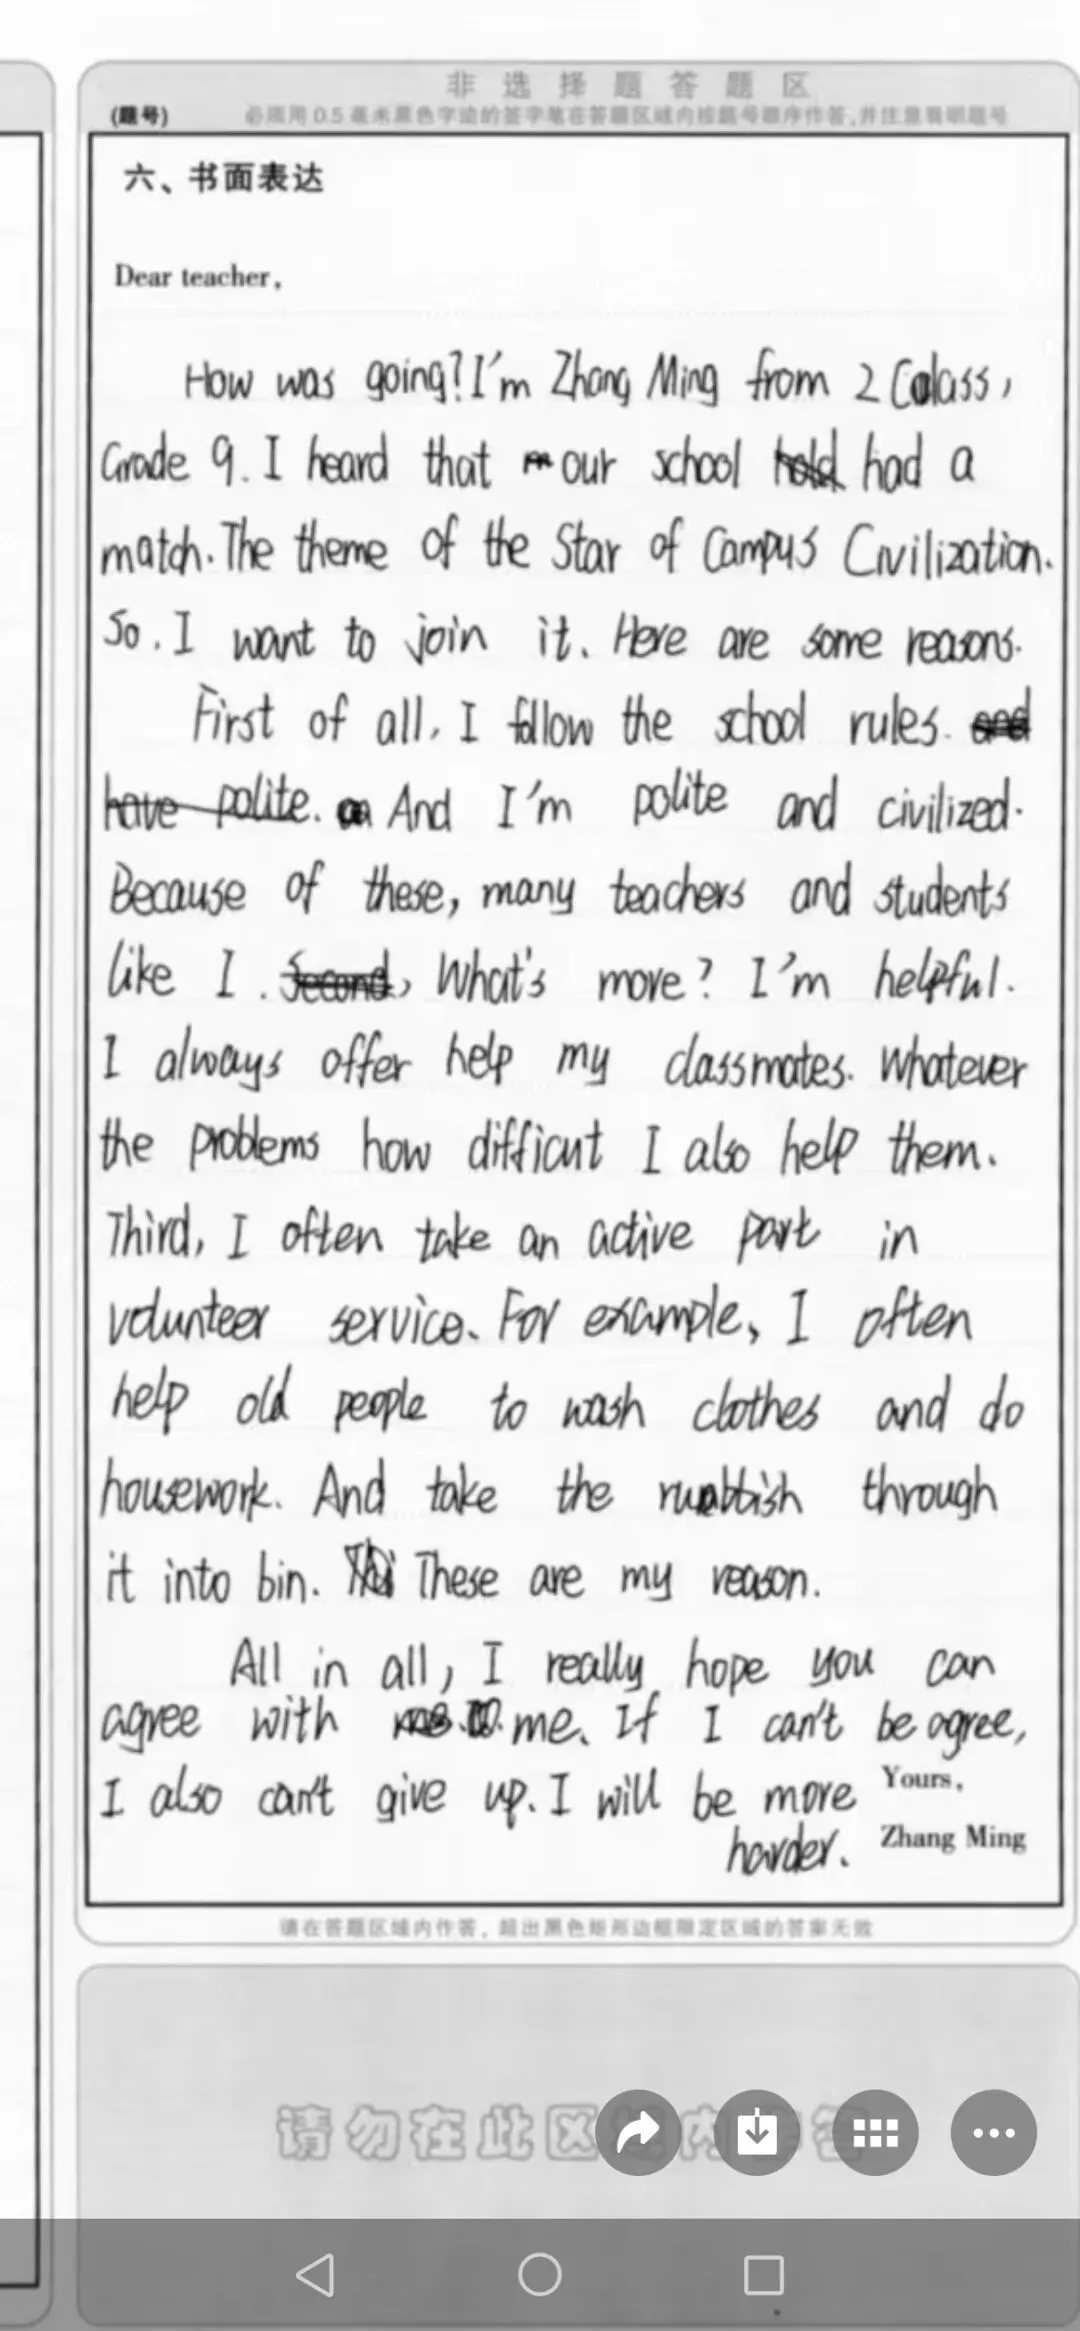 非选择题答题区
(题号) 必须用0.5毫米黑色字迹的签字笔在答题区域内按题号顺序作答,并注意写明题号
六、书面表达
Dear teacher,
How was going? I'm Zhang Ming from 2 Calass,
Grade 9. I heard that our school had a
match. The theme of the Star of Campus Civilization.
So. I want to join it. Here are some reasons.
First of all, I follow the school rules.
have polite. And I'm polite and civilized.
Because of these, many teachers and students
like I. Second, What's more? I'm helpful.
I always offer help my classmates. Whatever
the problems how difficut I also help them.
Third, I often take an active part in
volunteer service. For example, I often
help old people to wash clothes and do
housework. And take the through
it into bin. These are my reason.
All in all, I really hope you can
agree with me. If I can't be agree,
I also can't give up. I will be more
harder.
Yours,
Zhang Ming
请在答题区域内作答,超出黑色矩形边框限定区域的答案无效
请勿在此区